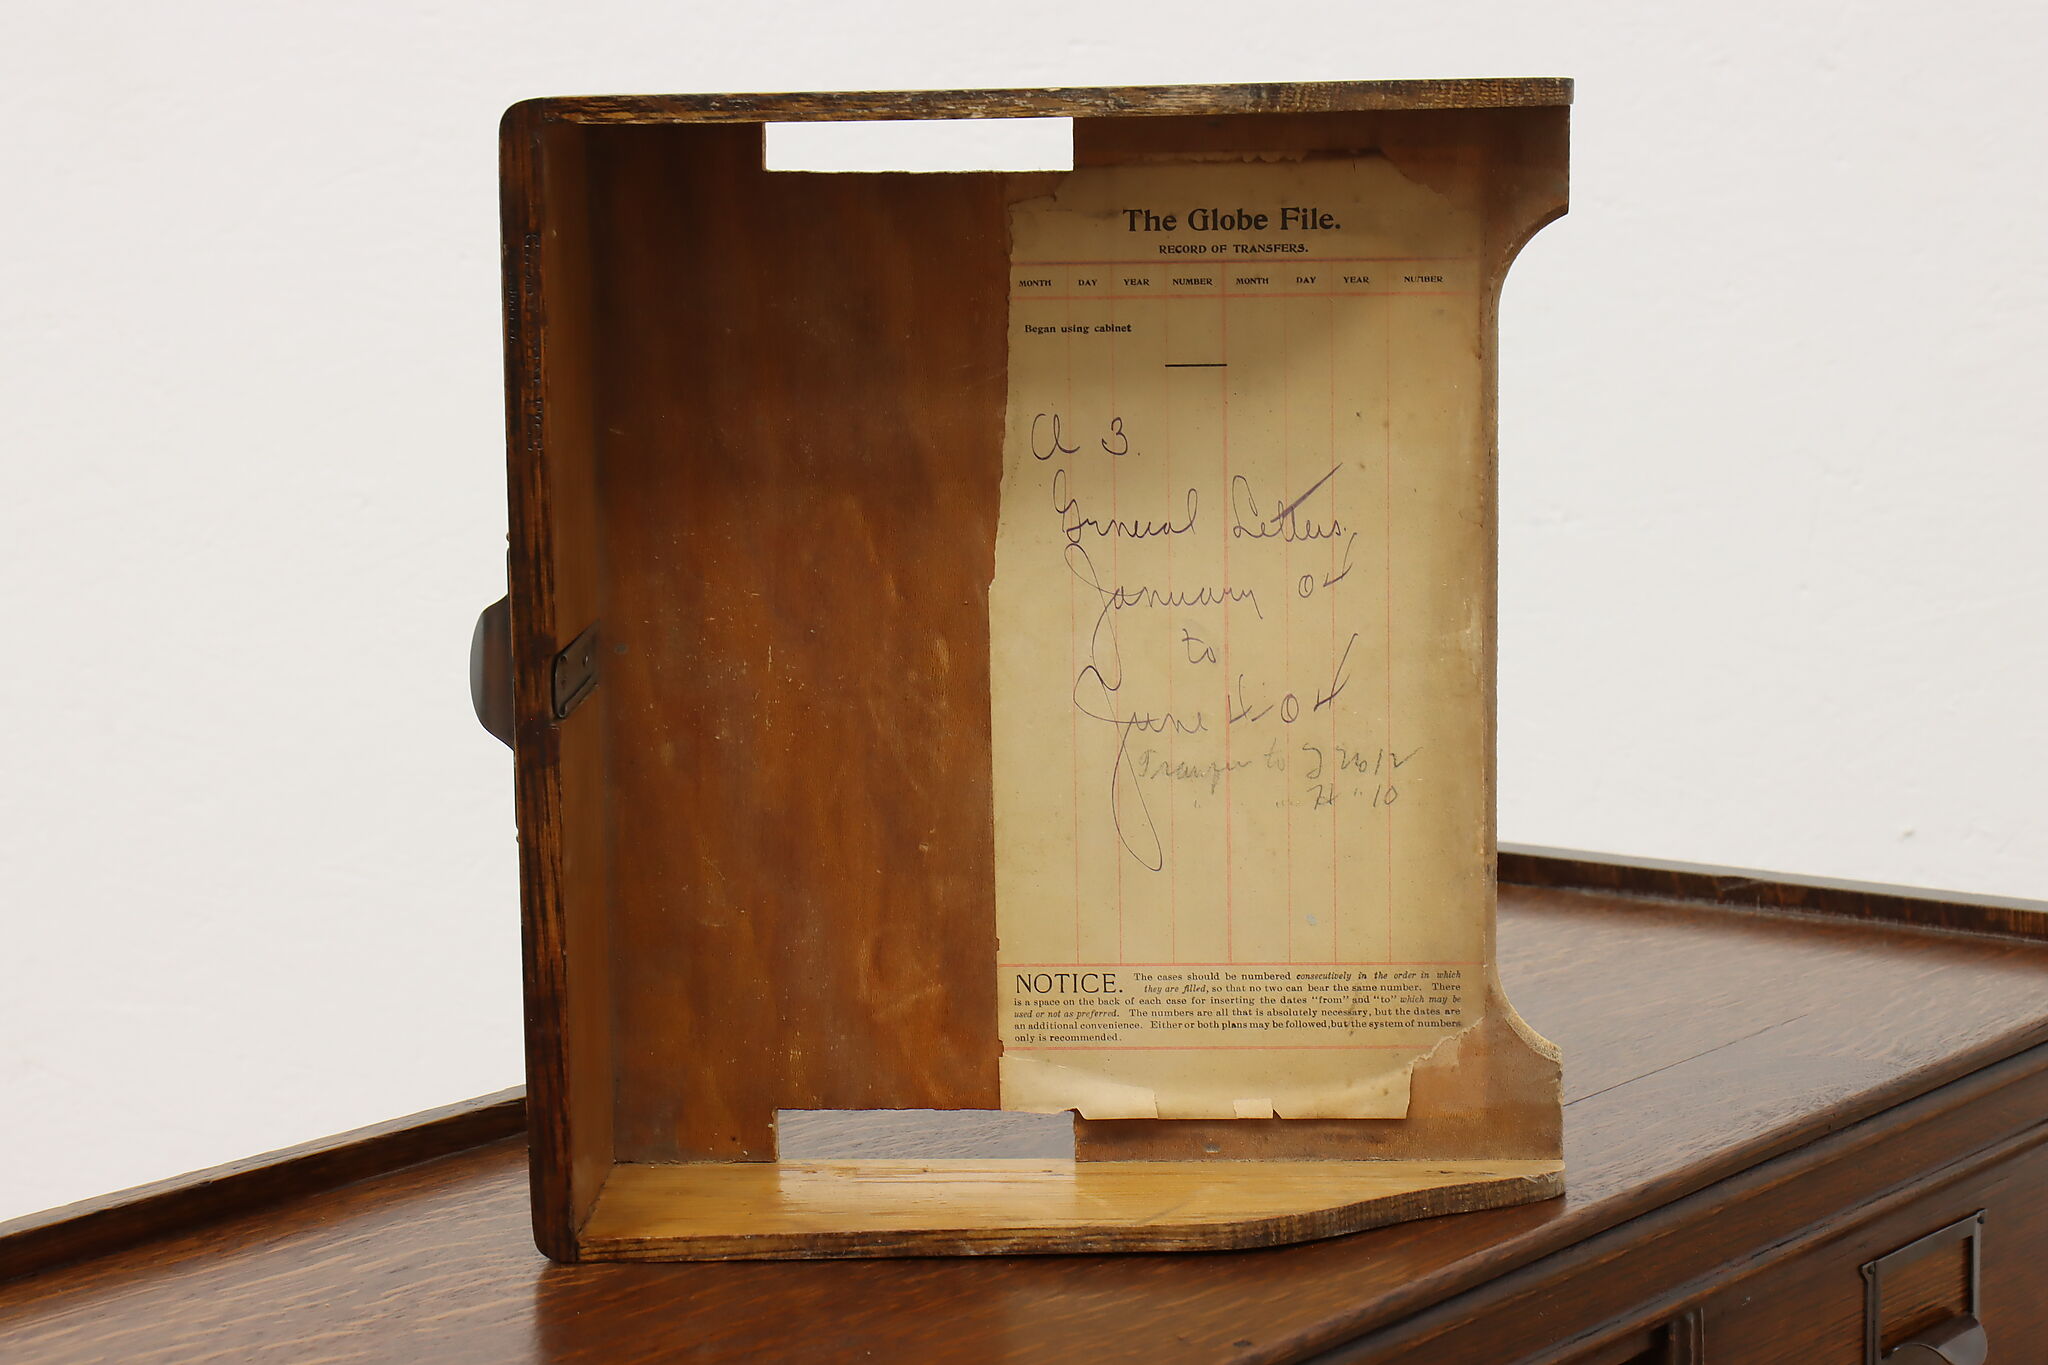 The Globe File.
RECORD OF TRANSFERS.
MONTH DAY YEAR NUMBER MONTH DAY YEAR NUMBER
Began using cabinet
A 3.
General Letters.
January 04
to
June 4 04
Transfer to
" " " 10
NOTICE. The cases should be numbered consecutively in the order in which
they are filled, so that no two can bear the same number. There
is a space on the back of each case for inserting the dates "from" and "to" which may be
used or not as preferred. The numbers are all that is absolutely necessary, but the dates are
an additional convenience. Either or both plans may be followed, but the system of numbers
only is recommended.